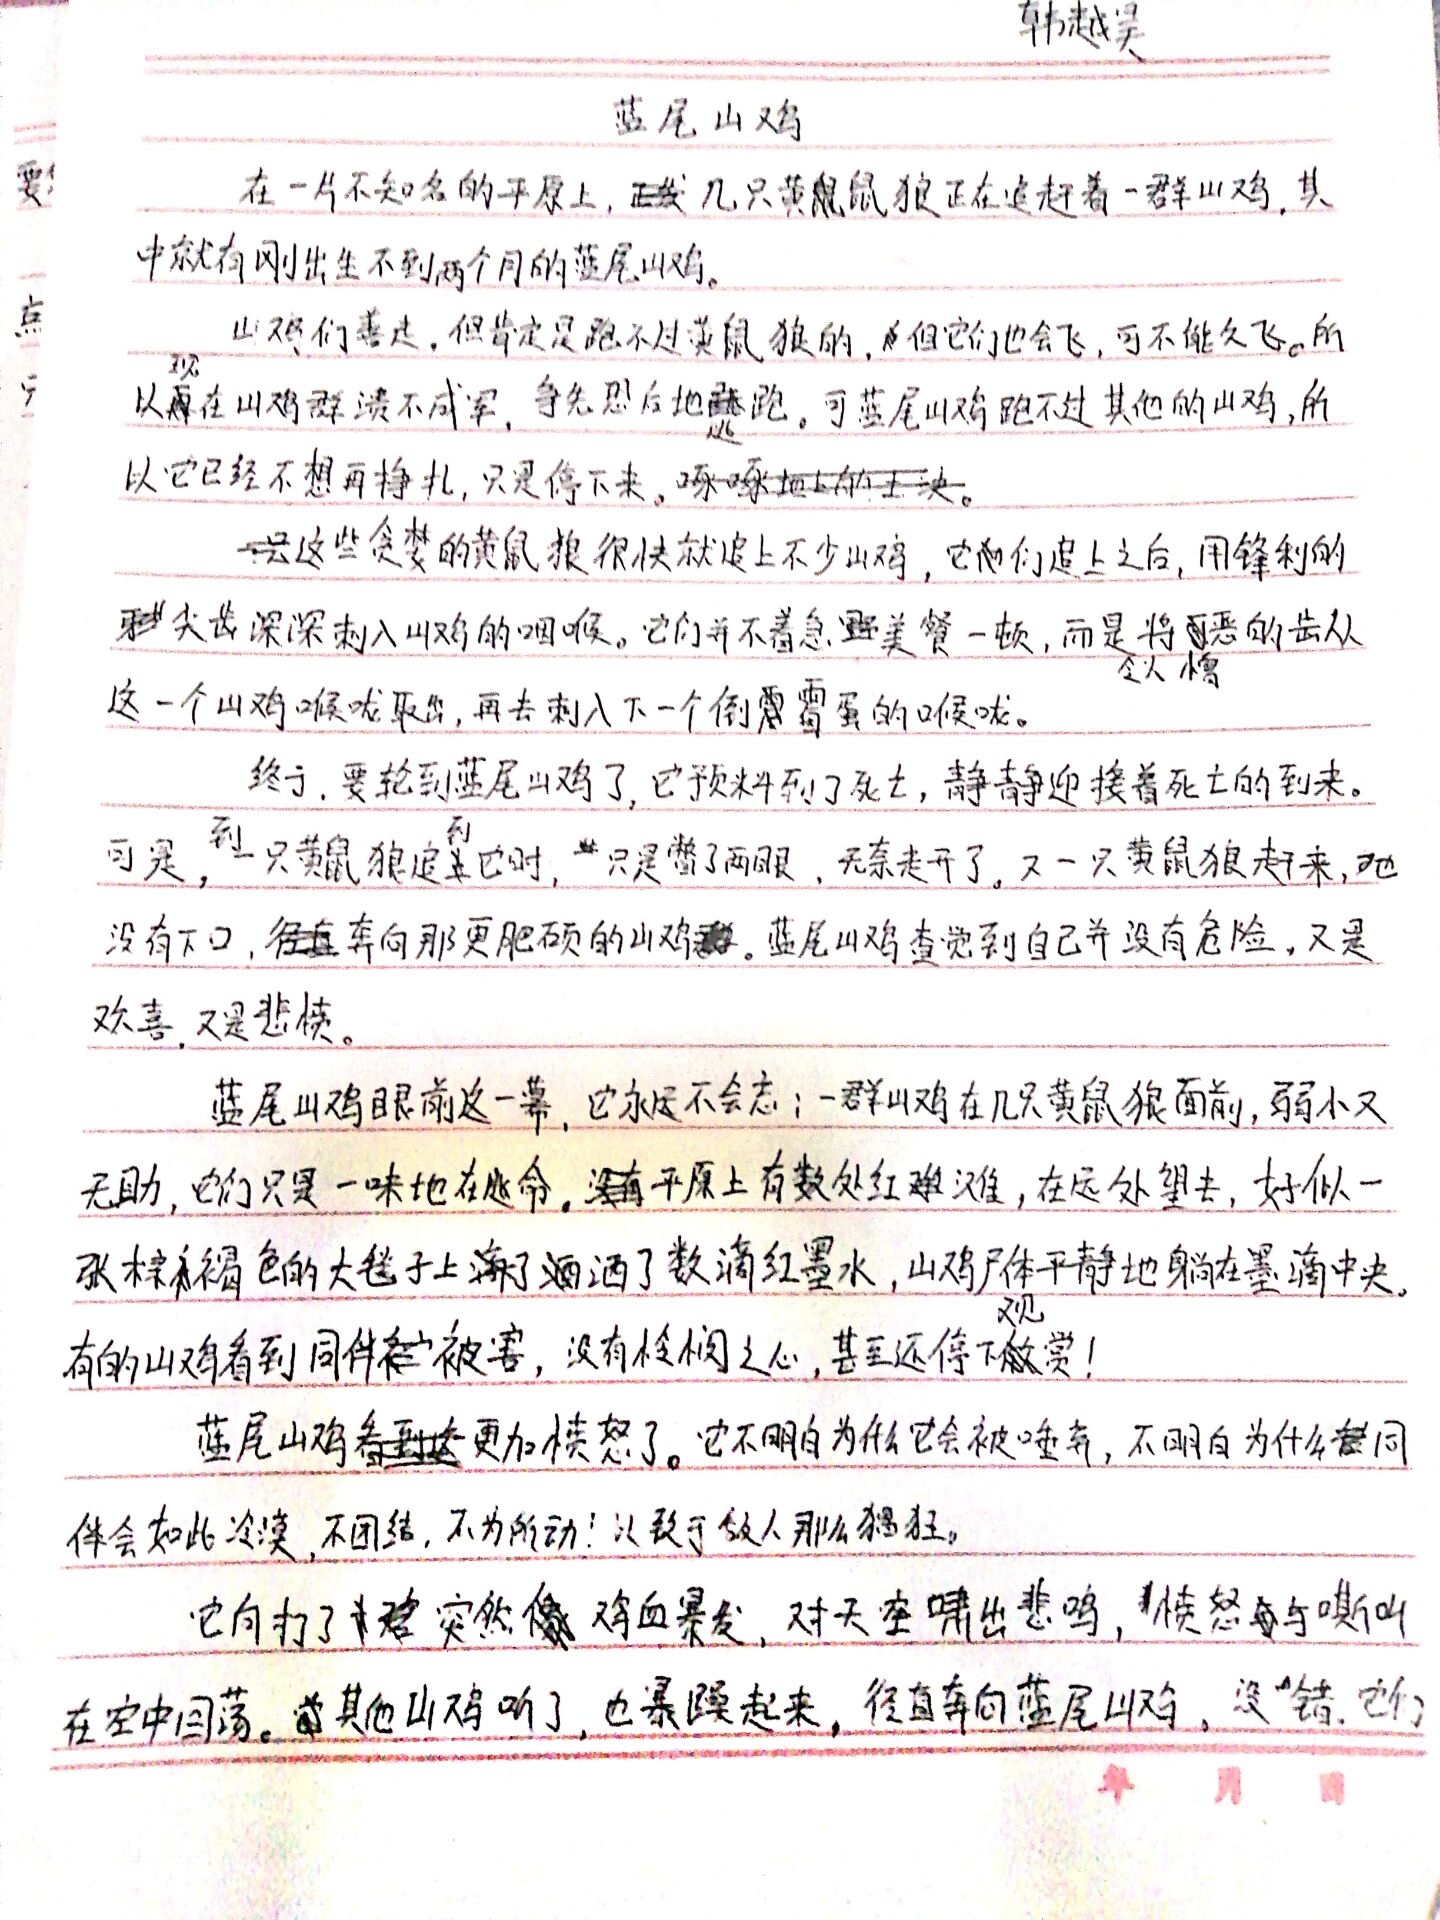 韩越昊
蓝尾山鸡
在一片不知名的平原上，几只黄鼠狼正在追赶着一群山鸡，其
中就有刚出生不到两个月的蓝尾山鸡。
山鸡们善走，但肯定是跑不过黄鼠狼的，但它们也会飞，可不能久飞。所
以现在山鸡群溃不成军，争先恐后地逃跑。可蓝尾山鸡跑不过其他的山鸡，所
以它已经不想再挣扎，只是停下来。
这些贪婪的黄鼠狼很快就追上不少山鸡，它们追上之后，用锋利的
尖齿深深刺入山鸡的咽喉。它们并不着急美餐一顿，而是将令人憎恶的齿从
这一个山鸡喉咙取出，再去刺入下一个倒霉蛋的喉咙。
终于，要轮到蓝尾山鸡了，它预料到了死亡，静静迎接着死亡的到来。
可是，到一只黄鼠狼追到它时，只是瞥了两眼，无奈走开了。又一只黄鼠狼赶来，也
没有下口，奔向那更肥硕的山鸡。蓝尾山鸡查觉到自己并没有危险，又是
欢喜，又是悲愤。
蓝尾山鸡眼前这一幕，它永远不会忘；一群山鸡在几只黄鼠狼面前，弱小又
无助，它们只是一味地在逃命。平原上有数处红滩，在远处望去，好似一
张棕褐色的大毯子上洒了数滴红墨水，山鸡尸体平静地躺在墨滴中央。
有的山鸡看到同伴被害，没有怜悯之心，甚至还停下观赏！
蓝尾山鸡更加愤怒了。它不明白为什么它会被唾弃，不明白为什么同
伴会如此冷漠，不团结，不为所动！以致于敌人那么猖狂。
它向打了突然鸡血暴发，对天空啸出悲鸣，愤怒与嘶叫
在空中回荡。其他山鸡听了，也暴躁起来，径直奔向蓝尾山鸡，没错，它们
年 月 日